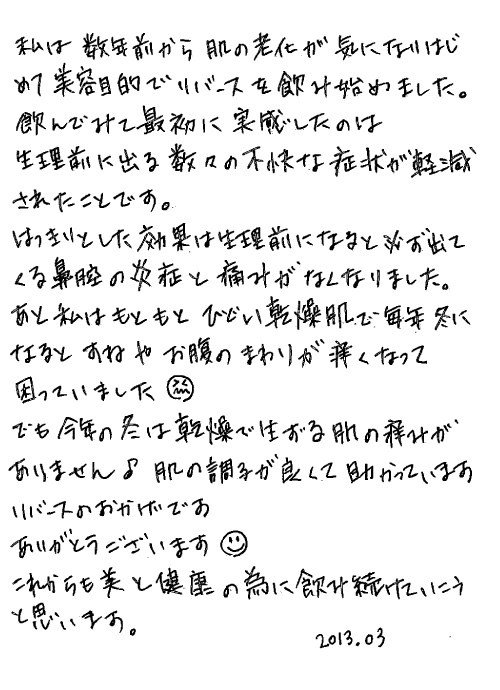 私は 数年前から 肌の老化が 気になりはじ
めて 美容目的でリバースを飲み始めました。
飲んでみて最初に 実感したのは
生理前に出る数々の不快な症状が軽減
されたことです。
はっきりとした効果は生理前になると必ず出て
くる鼻腔の炎症と痛みがなくなりました。
あと私はもともと ひどい乾燥肌で毎年冬に
なると すねや お腹のまわりが 痒くなって
困っていました
でも今年の冬は乾燥で生ずる肌の痒みが
ありません♪ 肌の調子が良くて助かっています
リバースのおかげです
ありがとうございます
これからも美と健康の為に飲み続けていこう
と思います。
2013.03